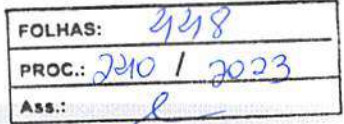 FOLHAS: 448
PROC.: 240 / 2023
Ass.: